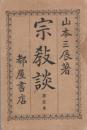 山本三辰著
宗教談
都屋書店